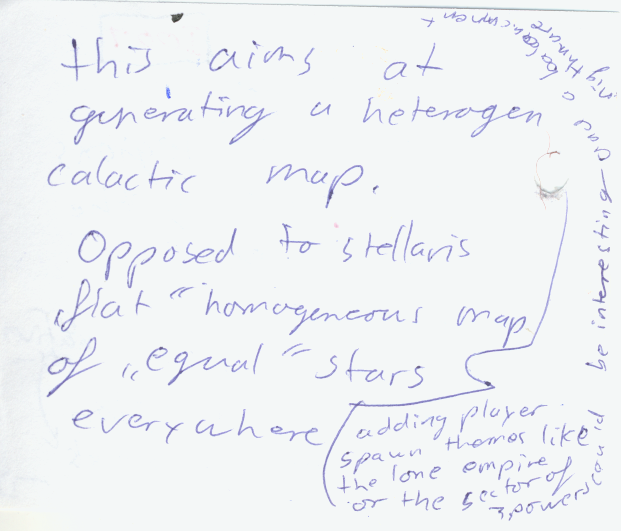 this aims at
generating a heterogen
calactic map.
Opposed to stellaris
„flat“ homogeneous map
of „equal“ stars
everywhere
adding player
spawn themes like
the lone empire
or the sector of
3 powers
could be interesting and
a
nigthmare